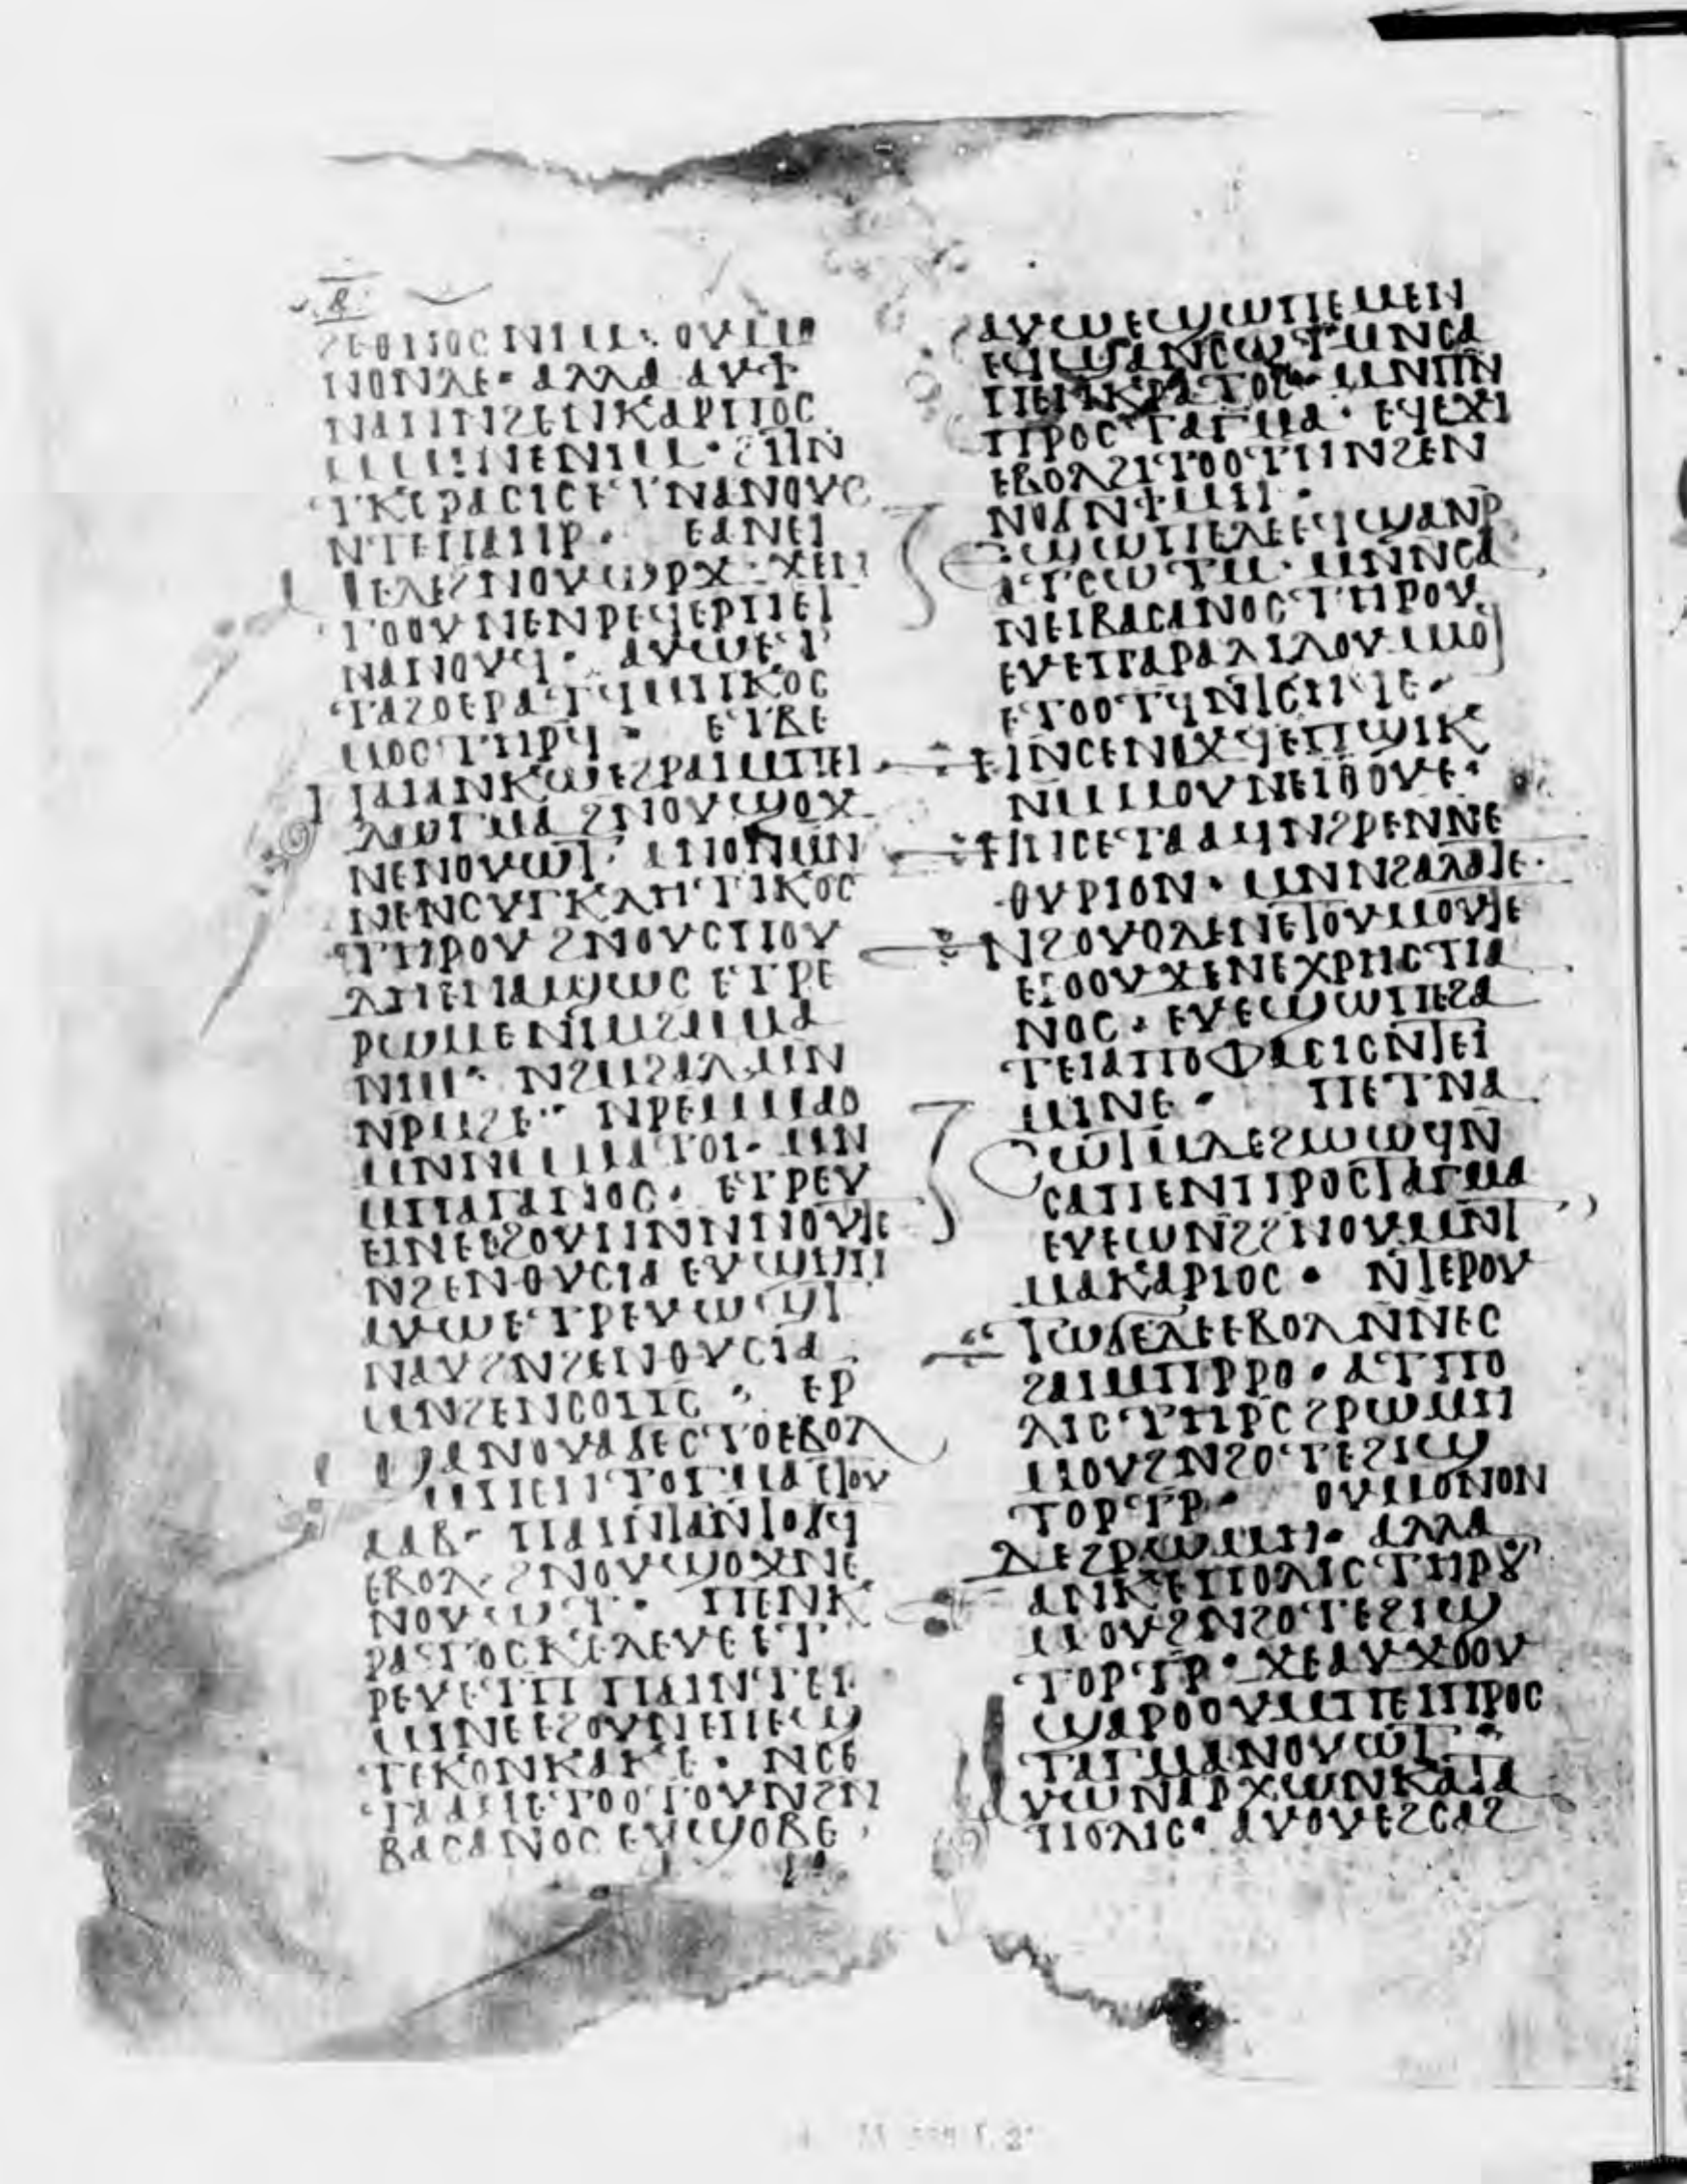 ⲃ
ϩⲉⲑⲛⲟⲥ ⲛⲓⲙ· ⲟⲩⲙⲟ
ⲛⲟⲛⲇⲉ· ⲁⲗⲗⲁ ⲁⲩϯ
ⲛⲁⲛⲛϩⲉⲛⲕⲁⲣⲡⲟⲥ
ⲙⲙⲓⲛⲉⲛⲓⲙ· ϩⲛⲛ
ⲧⲕⲣⲁⲥⲓⲥⲉⲧⲛⲁⲛⲟⲩⲥ
ⲛⲧⲉⲡⲁⲏⲣ· ⲉⲁⲛⲉⲓ
ⲙⲉⲇⲉϩⲛⲟⲩⲱⲣϫ· ϫⲉⲛ
ⲧⲟⲟⲩⲛⲉⲛⲣⲉϥⲉⲣⲡⲉⲧ
ⲛⲁⲛⲟⲩϥ· ⲁⲩⲱⲉⲧ
ⲧⲁϩⲟⲉⲣⲁⲧϥⲙⲡⲕⲟⲥ
ⲙⲟⲥⲧⲏⲣϥ· ⲉⲧⲃⲉ
ⲡⲁⲓⲁⲛⲕⲱⲉϩⲣⲁⲓⲙⲡⲉⲓ
ⲇⲟⲅⲙⲁ ϩⲛⲟⲩϣⲟϫ
ⲛⲉⲛⲟⲩⲱⲧ· ⲙⲛⲟⲛⲙⲛ
ⲛⲉⲛⲥⲩⲅⲕⲗⲏⲧⲓⲕⲟⲥ
ⲧⲏⲣⲟⲩ ϩⲛⲟⲩⲥⲡⲟⲩ
ⲇⲏⲉⲛⲁϣⲱⲥ ⲉⲧⲣⲉ
ⲣⲱⲙⲉⲛⲓⲙϩⲙⲙⲁ
ⲛⲓⲙ· ⲛϩⲙϩⲁⲗ ⲙⲛ
ⲛⲣⲙϩⲉ· ⲛⲣⲉⲙⲙⲁⲟ
ⲙⲛⲛⲙⲙⲁⲧⲟⲓ· ⲙⲛ
ⲙⲡⲁⲅⲁⲛⲟⲥ· ⲉⲧⲣⲉⲩ
ⲉⲓⲛⲉⲉϩⲟⲩⲛⲛⲛⲛⲟⲩⲧⲉ
ⲛϩⲉⲛⲑⲩⲥⲓⲁ ⲉⲩϣⲏⲡ
ⲁⲩⲱⲉⲧⲣⲉⲩⲱϣⲧ
ⲛⲁⲩϩⲛϩⲉⲛⲑⲩⲥⲓⲁ
ⲙⲛϩⲉⲛⲥⲟⲡⲥ· ⲉⲣ
ϣⲁⲛⲟⲩⲁⲇⲉⲥⲧⲟⲉⲃⲟⲗ
ⲙⲡⲉⲓⲇⲟⲅⲙⲁ ⲉⲧⲟⲩ
ⲁⲁⲃ· ⲡⲁⲓⲛⲧⲁⲛⲧⲟϭϥ
ⲉⲃⲟⲗ ϩⲛⲟⲩϣⲟϫⲛⲉ
ⲛⲟⲩⲱⲧ· ⲡⲉⲛⲕ
ⲣⲁⲧⲟⲥⲕⲉⲗⲉⲩⲉ ⲉⲧ
ⲣⲉⲩⲉⲡ ⲡⲁⲓⲛⲧⲉⲓ
ⲙⲓⲛⲉⲉϩⲟⲩⲛⲉⲡⲉϣ
ⲧⲉⲕⲟⲛⲕⲁⲕⲉ· ⲛⲥⲉ
ⲧⲁⲁϥⲉⲧⲟⲟⲧⲟⲩⲛϩⲛ
ⲃⲁⲥⲁⲛⲟⲥ ⲉⲩϣⲟⲃⲉ
ⲁⲩⲱⲉϣⲱⲡⲉⲙⲉⲛ
ⲉϥϣⲁⲛⲥⲱⲧⲙⲛⲥⲁ
ⲡⲉⲛⲕⲣⲁⲧⲟⲥ· ⲙⲛⲡⲛ
ⲡⲣⲟⲥⲧⲁⲅⲙⲁ· ⲉϥⲉϫⲓ
ⲉⲃⲟⲗϩⲓⲧⲟⲟⲧⲛⲛϩⲉⲛ
ⲛⲟϭⲛϯⲙⲏ·
ⲉϣⲱⲡⲉⲇⲉⲉϥϣⲁⲛⲣ
ⲁⲧⲥⲱⲧⲙ· ⲙⲛⲛⲥⲁ
ⲛⲉⲓⲃⲁⲥⲁⲛⲟⲥⲧⲏⲣⲟⲩ
ⲉⲩⲉⲡⲁⲣⲁⲇⲓⲇⲟⲩ ⲙⲙⲟϥ
ⲉⲧⲟⲟⲧϥⲛⲧⲥⲏϥⲉ·
ⲏⲛⲥⲉⲛⲟϫϥⲉⲡϣⲓⲕ
ⲛⲙⲙⲟⲩⲛⲉⲓⲟⲟⲩⲉ·
ⲏⲛⲥⲉⲧⲁⲁϥⲛϩⲣⲉⲛⲛⲉ
ⲑⲩⲣⲓⲟⲛ· ⲙⲛⲛϩⲁⲗⲁⲧⲉ·
ⲛϩⲟⲩⲟⲇⲉⲛⲉⲧⲟⲩⲙⲟⲩⲧⲉ
ⲉⲣⲟⲟⲩϫⲉⲛⲉⲭⲣⲏⲥⲧⲓⲁ
ⲛⲟⲥ· ⲉⲩⲉϣⲱⲡⲉϩⲁ
ⲧⲉⲓⲁⲡⲟⲫⲁⲥⲓⲥⲛⲧⲉⲓ
ⲙⲓⲛⲉ· ⲡⲉⲧⲛⲁ
ⲥⲱⲧⲙⲇⲉϩⲱⲱϥⲛ
ⲥⲁⲡⲉⲛⲡⲣⲟⲥⲧⲁⲅⲙⲁ
ⲉϥⲉⲱⲛϩϩⲛⲟⲩⲙⲛⲧ
ⲙⲁⲕⲁⲣⲓⲟⲥ· ⲛⲧⲉⲣⲟⲩ
ⲧⲱϭⲉⲇⲉⲉⲃⲟⲗ ⲛⲛⲉⲥ
ϩⲁⲓⲙⲡⲣⲣⲟ· ⲁⲧⲡⲟ
ⲗⲓⲥⲧⲏⲣⲥϩⲣⲱⲙⲏ
ⲙⲟⲩϩⲛϩⲟⲧⲉϩⲓϣ
ⲧⲟⲣⲧⲣ· ⲟⲩⲙⲟⲛⲟⲛ
ⲇⲉϩⲣⲱⲙⲏ· ⲁⲗⲗⲁ
ⲁⲛⲕⲉⲡⲟⲗⲓⲥⲧⲏⲣⲟⲩ
ⲙⲟⲩϩⲛϩⲟⲧⲉϩⲓϣ
ⲧⲟⲣⲧⲣ· ϫⲉⲁⲩϫⲟⲟⲩ
ϣⲁⲣⲟⲟⲩⲙⲡⲉⲓⲡⲣⲟⲥ
ⲧⲁⲅⲙⲁⲛⲟⲩⲱⲧ·
ⲁⲩⲱⲛⲁⲣⲭⲱⲛⲕⲁⲧⲁ
ⲡⲟⲗⲓⲥ· ⲁⲩⲟⲩⲉϩⲥⲁϩ